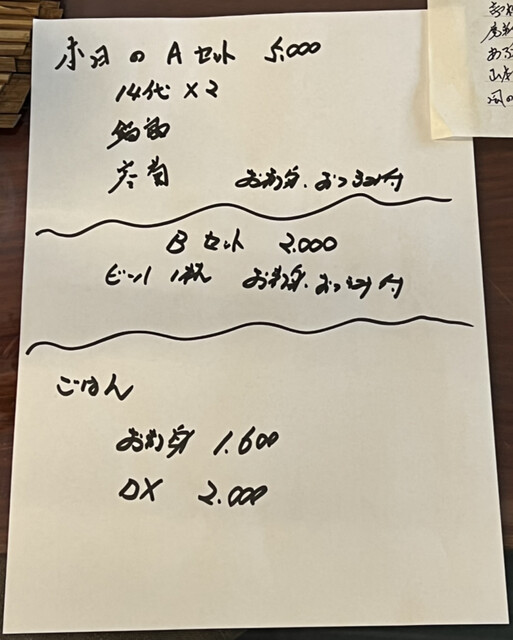 本日の Aセット 5,000
14代 ×2
お刺身、おつまみ付
Bセット 2.000
ビール 1杯 お刺身、おつまみ付
ごはん
お刺身 1.600
DX 2.000